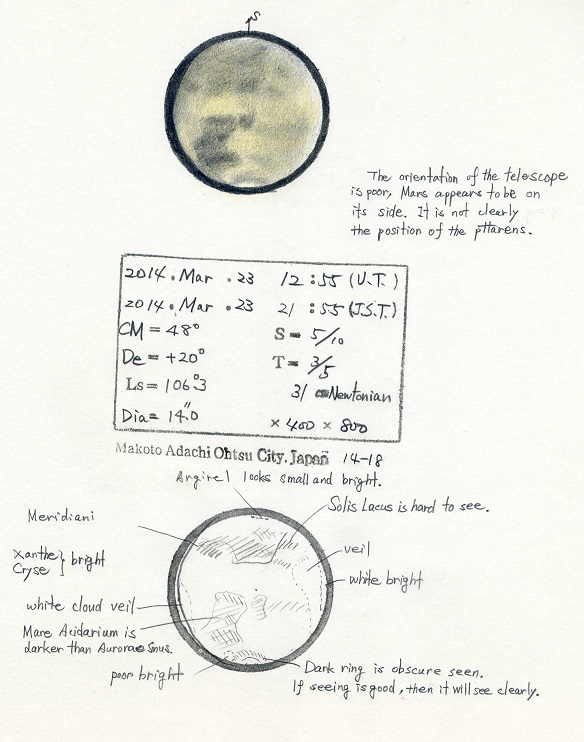 S
The orientation of the telescope
is poor, Mars appears to be on
its side. It is not clearly
the position of the pttarens.
2014. Mar. 23 12:55 (U.T.)
2014. Mar. 23 21:55 (J.S.T.)
CM = 48° S = 5/10
De = +20° T = 3/5
Ls = 106°.3 31 cm Newtonian
Dia = 14".0 × 400 × 800
Makoto Adachi Ohtsu City. Japan 14-18
Argire I looks small and bright.
Solis Lacus is hard to see.
Meridiani
veil
Xanthe
Cryse } bright
white bright
white cloud veil
Mare Acidarium is
darker than Aurorae Sinus.
Dark ring is obscure seen.
poor bright
If seeing is good, then it will see clearly.